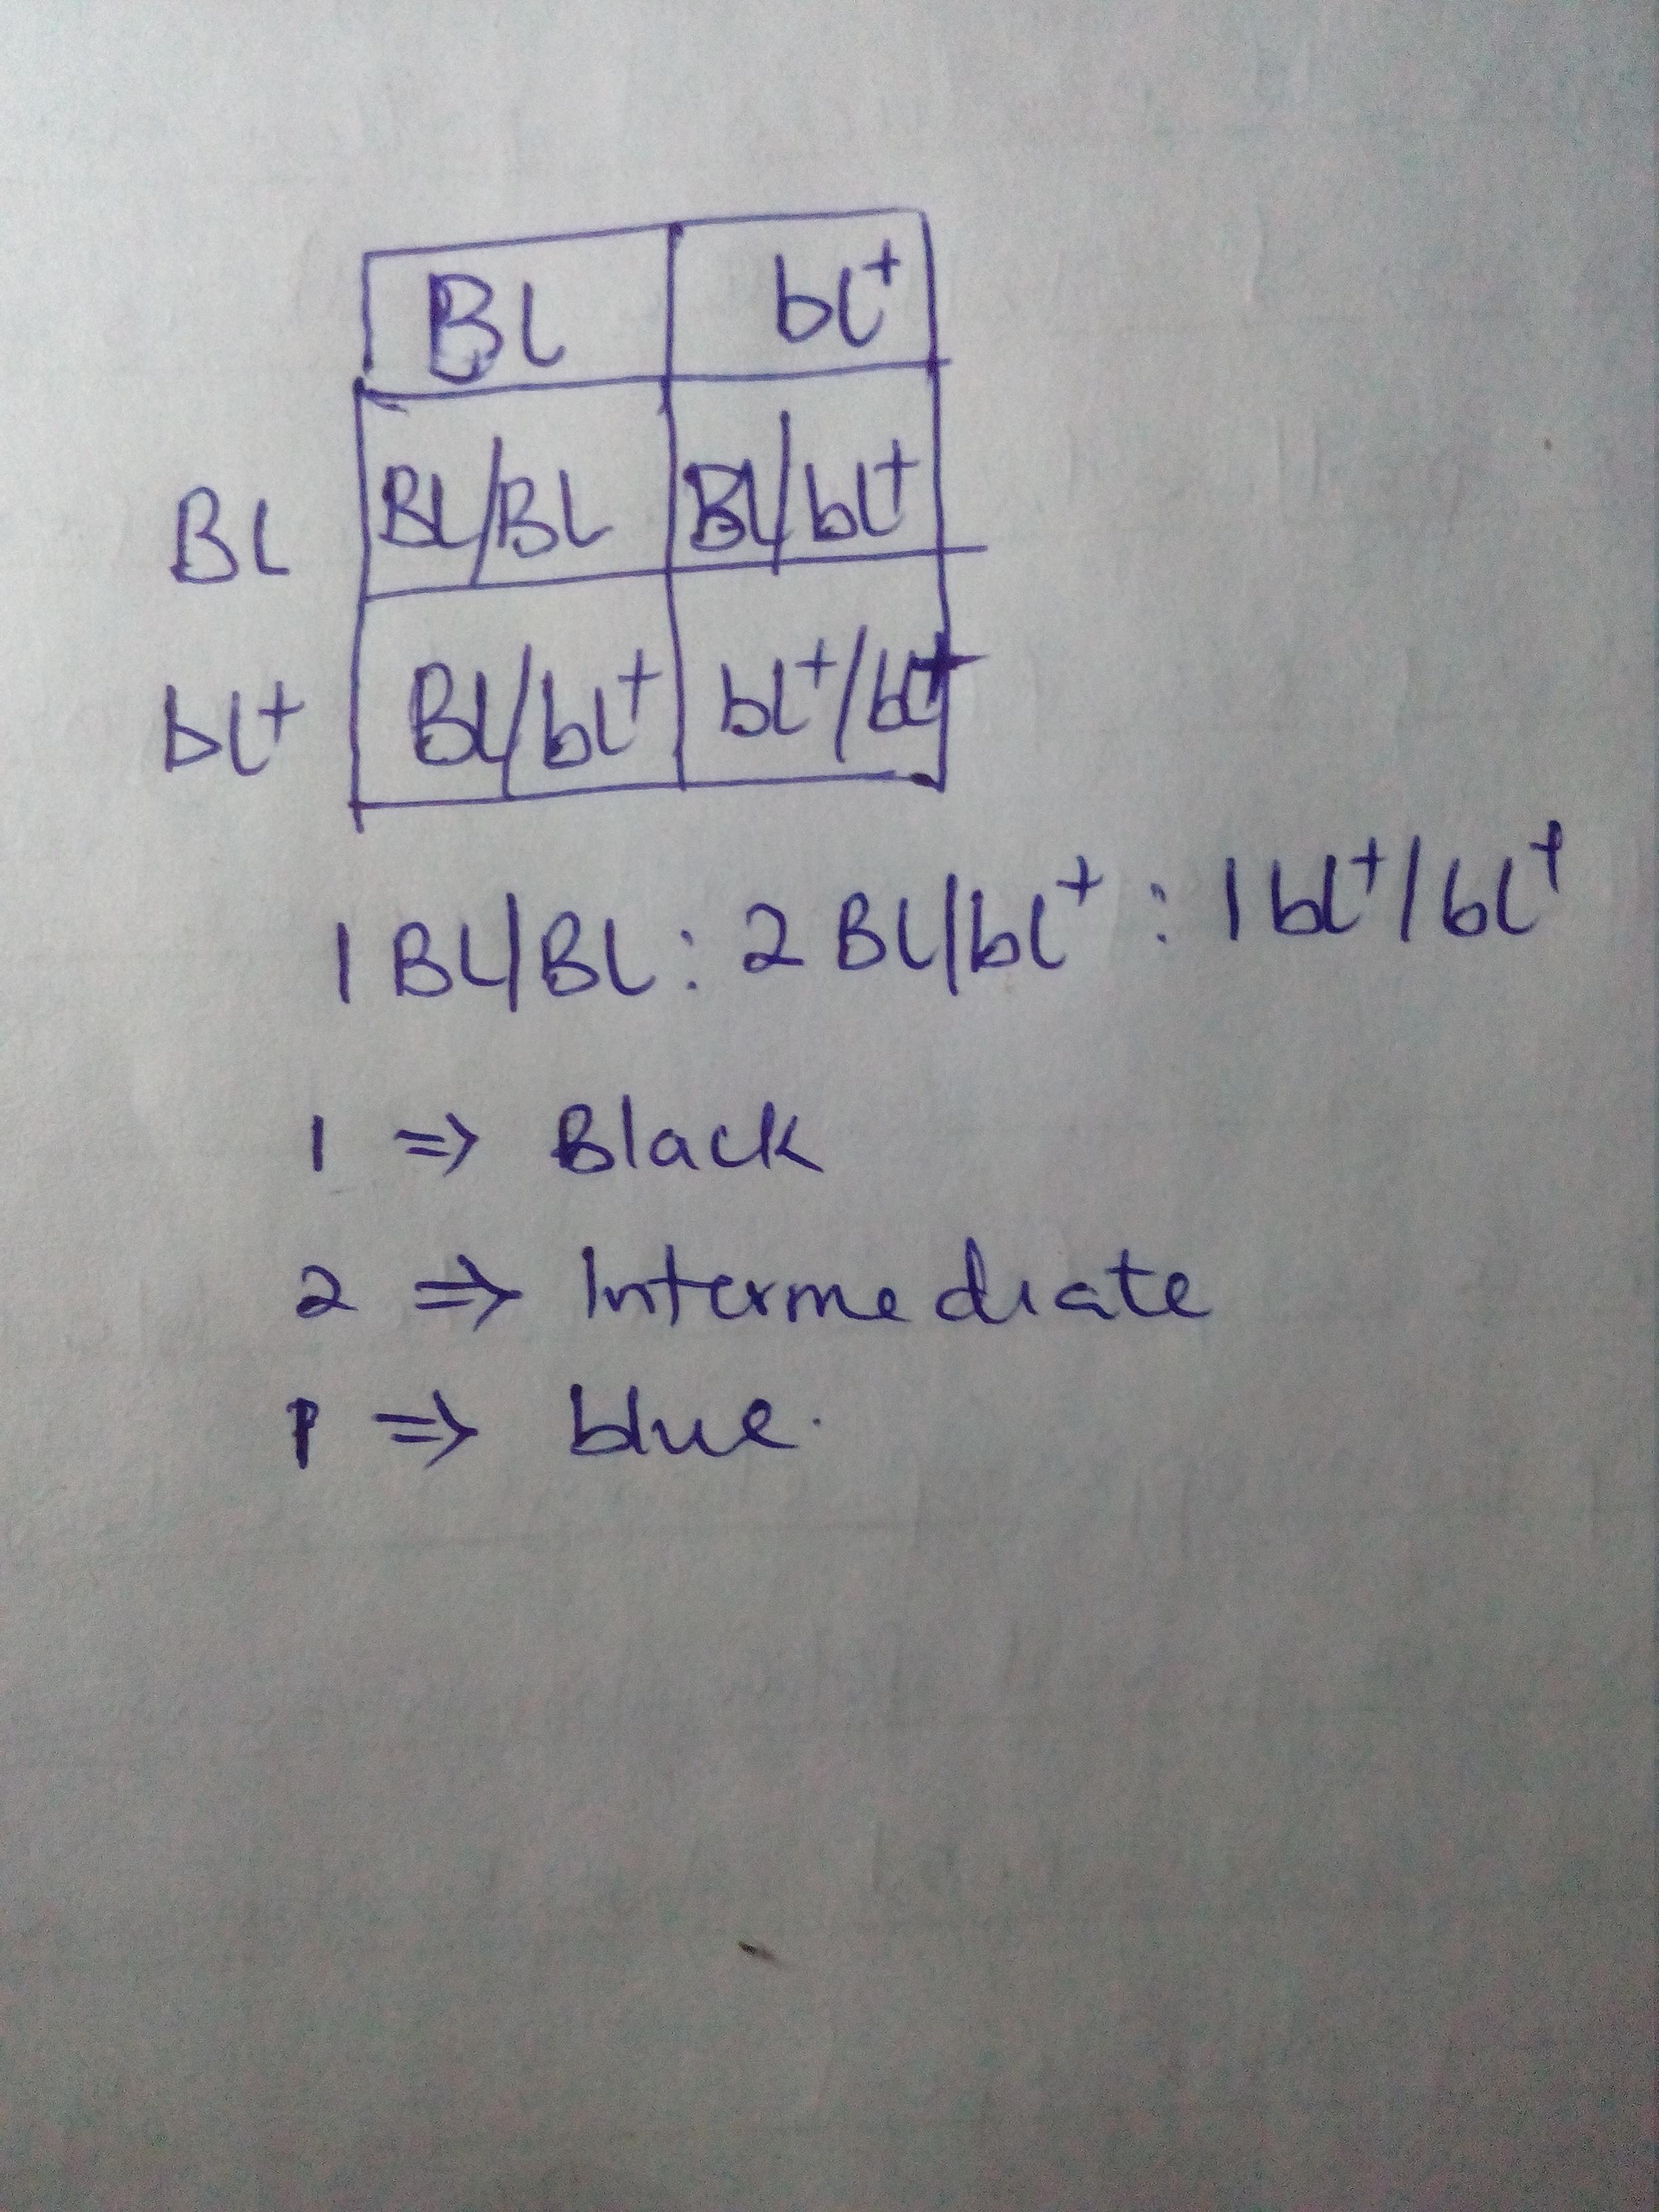 Bl bl⁺
Bl Bl/Bl Bl/bl⁺
bl⁺ Bl/bl⁺ bl⁺/bl⁺
1 Bl/Bl : 2 Bl/bl⁺ : 1 bl⁺/bl⁺
1 ⇒ Black
2 ⇒ Intermediate
1 ⇒ blue.